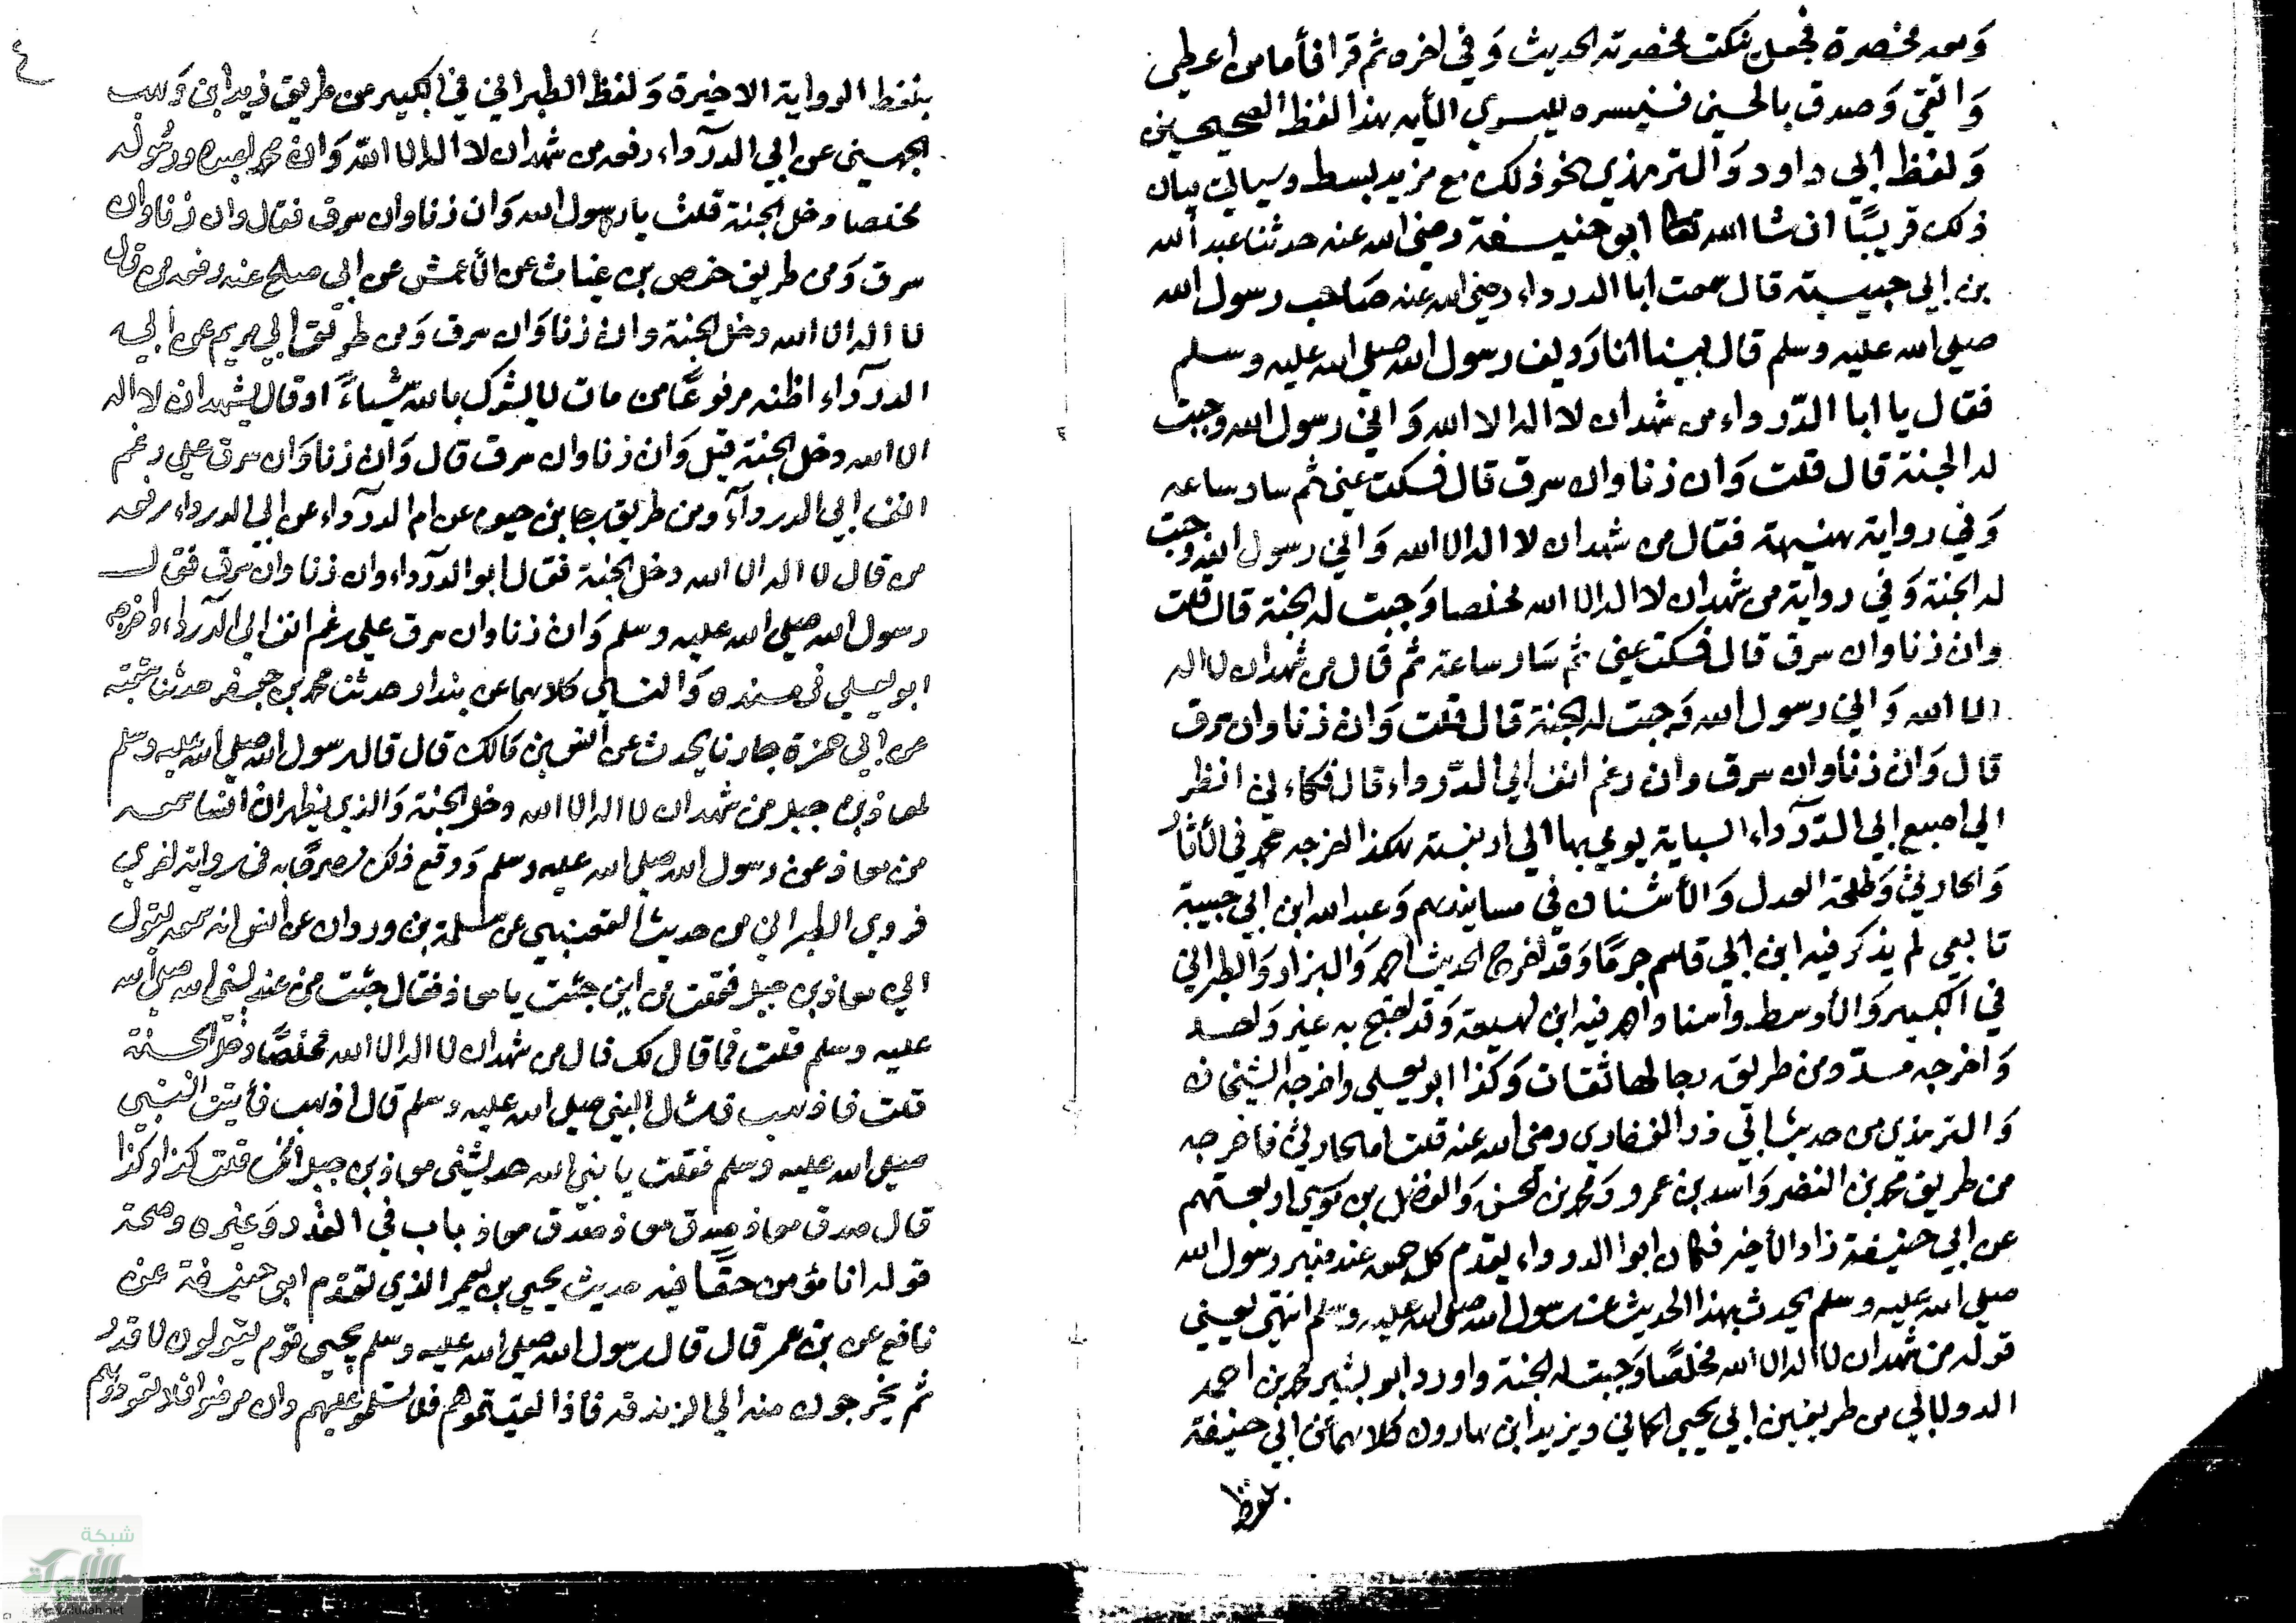 ومعه مخصرة فجعل ينكت بمخصرته الحديث وَفي اخره ثم قرا فأما من اعطى
وَاتقى وَصدق بالحسنى فسنيسره لليسرى الأيه هذا لفظ الصحيحين
وَلفظ ابي داود وَالترمذي نحو ذلك مع مزيد بسط وسياتي بيان
ذلك قريبًا ان شا الله تعالى ابو حنيفة رضي الله عنه حدثنا عبد الله
بن ابي حبيبة قال سمعت ابا الدرداء رضي الله عنه صاحب رسول الله
صلى الله عليه وسلم قال بينا انا رَديف رسول الله صلى الله عليه وسلم
فقال يا ابا الدّرداء من شهد ان لا اله الا الله وَاني رسول الله وجبت
له الجنة قال قلت وَان زنا وان سرق قال فسكت عني ثم سار ساعه
وَفي رواية هنيهة فقال من شهد ان لا اله الا الله وَاني رسول الله وجبت
له الجنة وَفي رواية من شهد ان لا اله الا الله مخلصا وَجبت له الجنة قال قلت
وان زنا وان سرق قال فسكت عني ثم سَار ساعة ثم قال من شهد ان لا اله
الا الله وَاني رسول الله وَجبت له الجنة قال قلت وَان زنا وان سرق
قال وَان زنا وان سرق وان رغم انف ابي الدّرداء قال فكاني انظر
الي اصبع ابي الدّرداء السبابة يومي بها الي ارنبته هكذا اخرجه محمد في الأثار
وَالحارثي وَطلحة العدل وَالأشناني في مسانيدهم وَعبد الله ابن ابي حبيبة
تابعي لم يذكر فيه ابن ابي حاتم جرحًا وَقد اخرج الحديث احمد وَالبزار وَالطبراني
في الكبير وَالأوسط واسناد احمد فيه ابن لهيعة وَقد احتج به غير وَاحد
وَاخرجه مسدّد من طريق رجالها ثقات وَكذا ابو يعلي واخرجه الشيخان
وَالترمذي من حديث ابي ذر الغفاري رضي الله عنه قلت اما الحارثي فاخرجه
من طريق محمد بن النضر وَاسد بن عمرو وَمحمد بن الحسن وَالفضل بن موسي اربعتهم
عن ابي حنيفة زاد الأخير فكان ابوا الدرداء يقدم كل جمعه عند منبر رسول الله
صلى الله عليه وسلم يحدث بهذا الحديث عن رسول الله صلى الله عليه وسلم انتهى يعني
قوله من شهد ان لا اله الا الله مخلصًا وَجبت له الجنة واورد ابو بشير محمد بن احمد
الدولابي من طريقين ابي يحيي الحماني ويزيد ابن هارون كلاهما عن ابي حنيفة
بلفظ
٤
بلفظ الرواية الاخيرة وَلفظ الطبراني في الكبير من طريق زيد ابن وَهب
الجهيني عن ابي الدرآداء رفعه من شهد ان لا اله الا الله وَان محمدا عبده ورسُوله
مخلصا دخل الجنة قلت يا رسول الله وَان زنا وان سرق فقال وان زنا وان
سرق وَمن طريق حفص بن غياث عن الأعمش عن ابي صلح عنه رفعه من قال
لا اله الا الله دخل الجنة وان زنا وَان سرق وَمن طريق ابي مريم عن ابي
الدرآداء اظنه مرفوعًا من مات لا يشرك بالله شيئًا اوقال يشهد ان لا اله
الا الله دخل الجنة قيل وَان زنا وان سرق قال وَان زنا وَان سرق على رغم
انف ابي الدرداء ومن طريق رجا بن حيوه عن ام الدرآداء عن ابي الدرداء رفعه
من قال لا اله الا الله دخل الجنة فقال ابو الدرآداء وان زنا وان سرق فقال
رسول الله صلى الله عليه وسلم وَان زنا وان سرق على رغم انف ابي الدرآداء واخرجه
ابو يعلي في مسنده وَالنسائي كلاهما عن بندار حدثنا محمد بن جعفر حدثنا شعبة
عن ابي حمزة جارنا يحدث عن أنس بن مَالك قال قال رسول الله صلى الله عليه وسلم
لمعاذ بن جبل من شهد ان لا اله الا الله دخل الجنة وَالذي يظهر ان انسا سمعه
من معاذ عن رسول الله صلى الله عليه وسلم وَوقع ذلك مصرحًا به في رواية اخري
فروي الطبراني من حديث القعنبي عن سلمة بن وردان عن أنس انه سمعه يقول
اتي معاذ بن جبل فقلت من اين جئت يا معاذ فقال جئت من عند النبي صلى الله
عليه وسلم قلت فما قال لك قال من شهد ان لا اله الا الله مخلصًا دخل الجنة
قلت فاذهب فاسئل النبي صلى الله عليه وسلم قال اذهب فأتيت النبي
صلى الله عليه وسلم فقلت يا نبي الله حدثني معاذ بن جبل انك قلت كذا وكذا
قال صدق معاذ صدق معاذ صدق معاذ باب في القدر وَغيره وصحة
قوله انا مؤمن حقًا فيه حديث يحيي بن يعمر الذي تقدم ابو حنيفة عن
نافع عن بن عمر قال قال رسول الله صلى الله عليه وسلم يجي قوم يقولون لا قدرُ
ثم يخرجون منه الي الزندقه فاذا لقيتموهم فلا تسلموا عليهم وان مرضوا فلا تعودوهم
شبكة
الألوكة
www.alukah.net